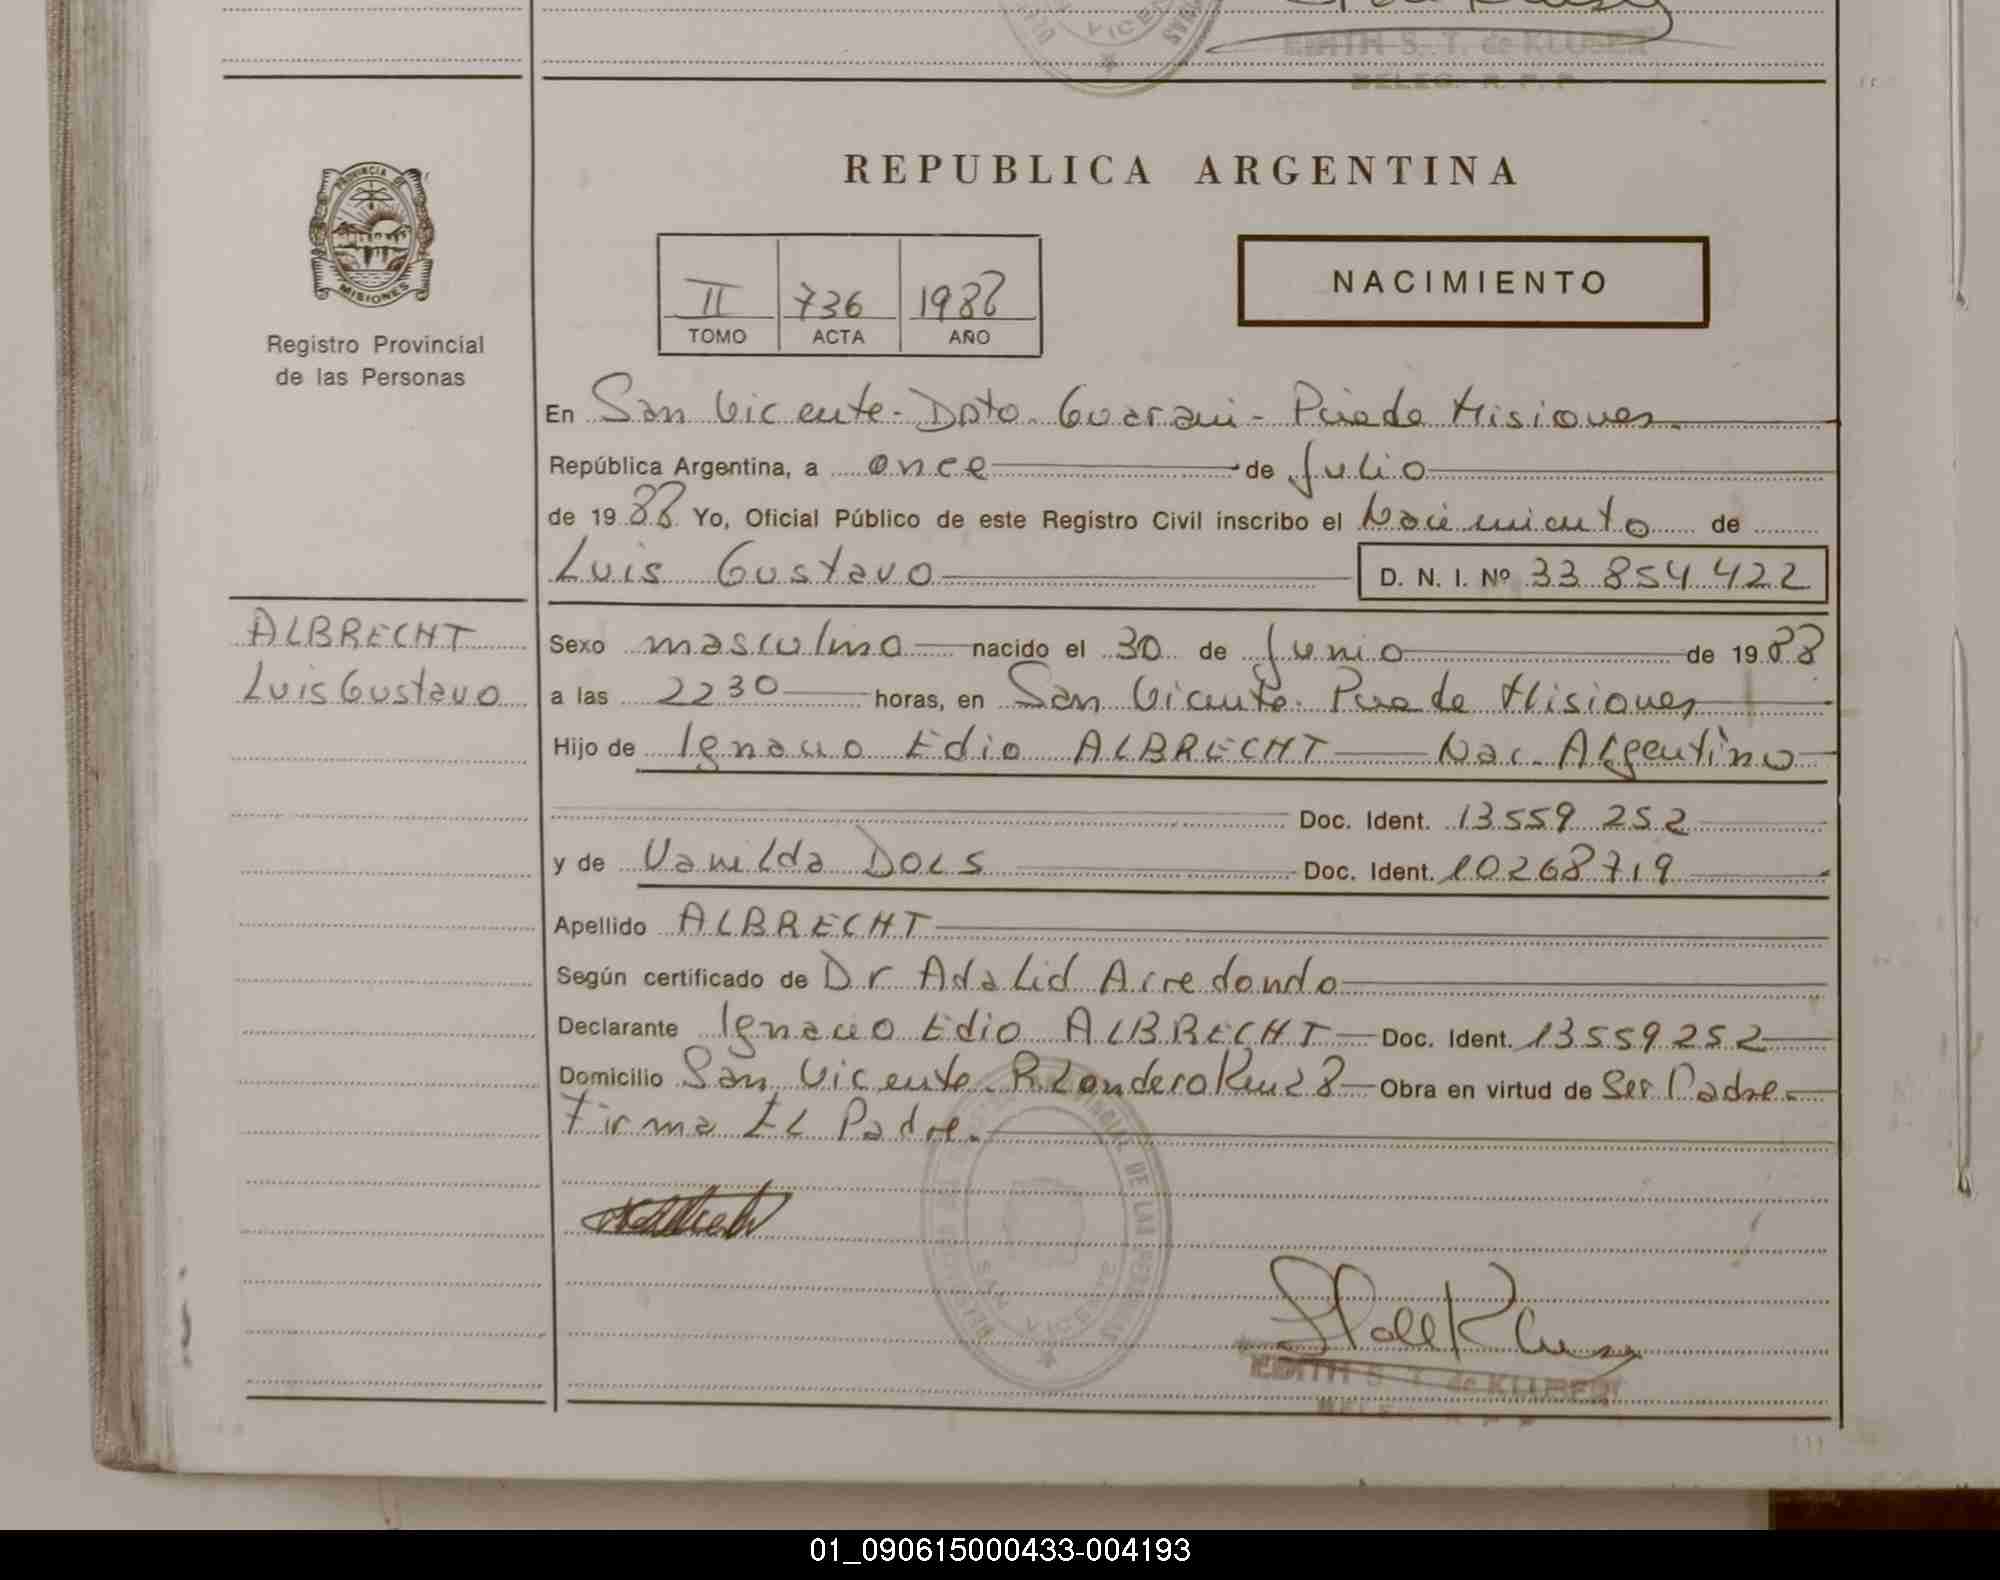 EDITH S. T. de KLUBER
DELEG. R. P. P.
VICENTE
PROVINCIA DE
MISIONES
Registro Provincial
de las Personas
REPUBLICA ARGENTINA
II 736 1988
TOMO ACTA AÑO
NACIMIENTO
En San Vicente - Dpto. Guarani - Pcia de Misiones
República Argentina, a once de Julio
de 1988 Yo, Oficial Público de este Registro Civil inscribo el Nacimiento de
Luis Gustavo D. N. I. Nº 33 854 422
ALBRECHT
Luis Gustavo
Sexo masculino nacido el 30 de Junio de 1988
a las 22 30 horas, en San Vicente. Pcia de Misiones
Hijo de Ignacio Edio ALBRECHT Nac. Argentino
Doc. Ident. 13559 252
y de Vanilda DOLS Doc. Ident. 10268719
Apellido ALBRECHT
Según certificado de Dr Adalid Arredondo
Declarante Ignacio Edio ALBRECHT Doc. Ident. 13559252
Domicilio San Vicente. R. Londero Km 28 Obra en virtud de Ser Padre.
Firma EL Padre.
SAN VICENTE
EDITH S. T. de KLUBER
DELEG. R. P. P.
01_090615000433-004193